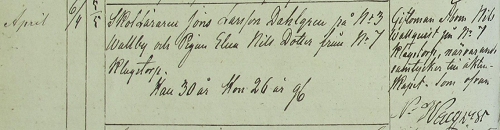 April 6/4 5/5
Skolläraren Jöns Larsson Dahlgren på No 3
Wallby och Pigan Elna Nils Dotter från No 7
Klagstorp.
Han 30 år Hon 26 år 96
Giftoman Nils
Wallquist på No 7
Klagstorp, närvarande
samtycker till äkten-
skapet. Som ofvan